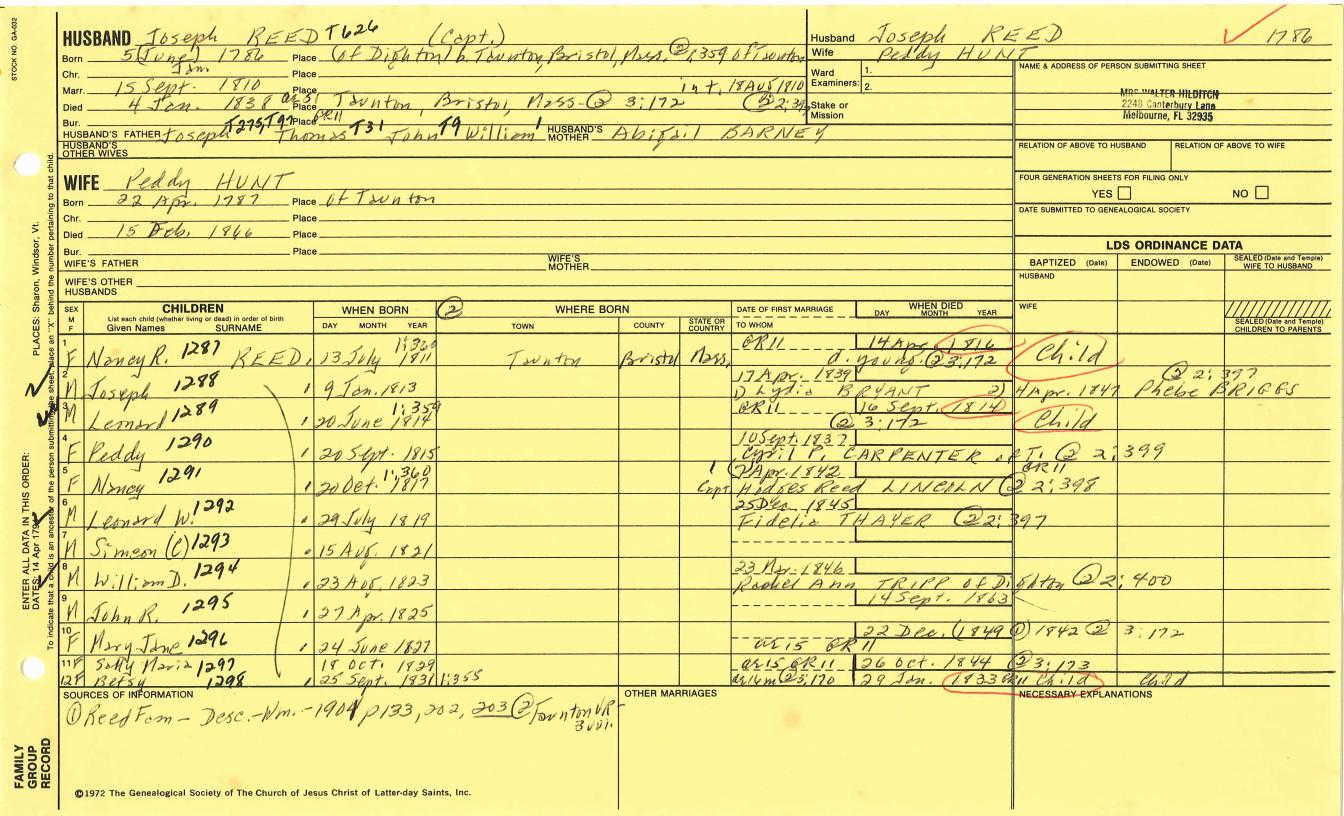 STOCK NO. GA-032
HUSBAND Joseph REED T626 (Capt.)
Born 5 (June) 1786 Place (of Dighton) b. Taunton, Bristol, Mass. ② 1,359 of Taunton
Jan.
Chr. Place
Marr. 15 Sept. 1810 Place int, 18 Aug 1810
Died 4 Jan. 1838 ae 51 Place Taunton, Bristol, Mass. ② 3:172
Bur. Place GR11
HUSBAND'S FATHER Joseph T275, Thomas T31 John T9 William 1 HUSBAND'S MOTHER Abigail BARNEY
HUSBAND'S OTHER WIVES
Husband Joseph REED 1786
Wife Peddy HUNT
Ward Examiners: 1.
2.
Stake or Mission
NAME & ADDRESS OF PERSON SUBMITTING SHEET
MRS WALTER HILDITCH
2248 Canterbury Lane
Melbourne, FL 32935
RELATION OF ABOVE TO HUSBAND RELATION OF ABOVE TO WIFE
FOUR GENERATION SHEETS FOR FILING ONLY
YES NO
DATE SUBMITTED TO GENEALOGICAL SOCIETY
WIFE Peddy HUNT
Born 22 Apr. 1787 Place of Taunton
Chr. Place
Died 15 Feb. 1866 Place
Bur. Place
WIFE'S FATHER WIFE'S MOTHER
WIFE'S OTHER HUSBANDS
LDS ORDINANCE DATA
BAPTIZED (Date) ENDOWED (Date) SEALED (Date and Temple) WIFE TO HUSBAND
HUSBAND
WIFE
SEALED (Date and Temple) CHILDREN TO PARENTS
SEX M F CHILDREN List each child (whether living or dead) in order of birth Given Names SURNAME
WHEN BORN DAY MONTH YEAR ② WHERE BORN TOWN COUNTY STATE OR COUNTRY
DATE OF FIRST MARRIAGE TO WHOM WHEN DIED DAY MONTH YEAR
1 F Nancy R. 1287 REED 13 July 1811 1:360 Taunton Bristol Mass. GR11 14 Apr. 1816 d. young ② 3:172 Child
2 M Joseph 1288 9 Jan. 1813 17 Apr. 1839 ② 2:397
Lydia BRYANT 2) 4 Apr. 1847 Phebe BRIGGS
3 M Leonard 1289 20 June 1814 1:359 GR11 16 Sept. 1814 ② 3:172 Child
4 F Peddy 1290 20 Sept. 1815 10 Sept. 1837
Cyril P. CARPENTER of T. ② 2:399
5 F Nancy 1291 20 Oct. 1817 1:360 7 Apr. 1842 GR11
Capt. Hodges Reed LINCOLN ② 2:398
6 M Leonard W. 1292 29 July 1819 25 Dec. 1845
Fidelia THAYER ② 2:397
7 M Simeon (C) 1293 15 Aug. 1821
8 M William D. 1294 23 Aug. 1823 23 Mr. 1846
Rachel Ann TRIPP of Dighton ② 2:400
9 M John R. 1295 27 Apr. 1825 14 Sept. 1863
10 F Mary Jane 1296 24 June 1827 22 Dec. (1849 ①) 1842 ② 3:172
ae 15 GR11
11 F Sally Maria 1297 18 Oct. 1829 ae 15 GR11 26 Oct. 1844 ② 3:173
12 F Betsy 1298 25 Sept. 1831 1:355 ae 16m ② 3:170 29 Jan. 1833 GR11 Child Child
SOURCES OF INFORMATION
① Reed Fam - Desc. - Wm. - 1901 p133, 202, 203 ② Taunton VR - 3 vol.
OTHER MARRIAGES
NECESSARY EXPLANATIONS
©1972 The Genealogical Society of The Church of Jesus Christ of Latter-day Saints, Inc.
FAMILY GROUP RECORD
ENTER ALL DATA IN THIS ORDER:
PLACES: Sharon, Windsor, Vt.
DATES: 14 Apr 179
To indicate that a child is an ancestor of the person submitting the sheet, place an "X" behind the number pertaining to that child.